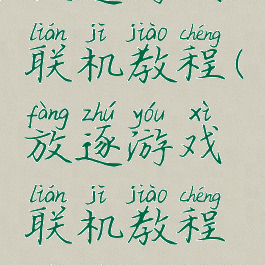 lián jī jiào chéng
联机教程(
fàng zhú yóu xì
放逐游戏
lián jī jiào chéng
联机教程